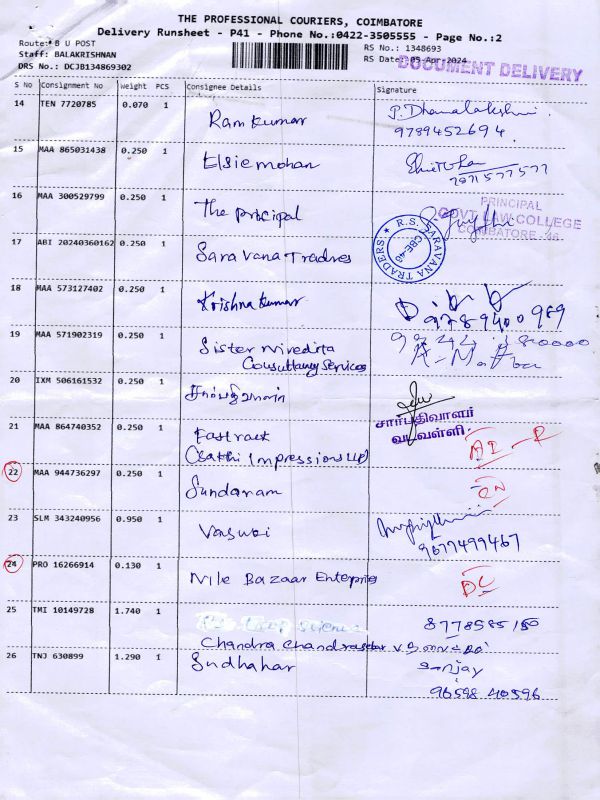 THE PROFESSIONAL COURIERS, COIMBATORE
Delivery Runsheet - P41 - Phone No.:0422-3505555 - Page No.:2
Route: B U POST
RS No.: 1348693
Staff: BALAKRISHNAN
RS Date: 05-Apr-2024
DOCUMENT DELIVERY
DRS No.: DCJB134869302
S No Consignment No Weight PCS Consignee Details Signature
14 TEN 7720785 0.070 1 Ram Kumar P. Dhanalakshmi
9789452694
15 MAA 865031438 0.250 1 Elsie mohan
7971577577
16 MAA 300529799 0.250 1 The Principal
PRINCIPAL
GOVT LAW COLLEGE
COIMBATORE-46
17 ABI 20240360162 0.250 1 Saravana Tradres
R.S. SARAVANA TRADERS
CBE-46
18 MAA 573127402 0.250 1 Krishna Kumar
9789400989
19 MAA 571902319 0.250 1 Sister Nivedita
Consultancy Services
20 IXM 506161532 0.250 1
சார்பதிவாளர்
வடவள்ளி
21 MAA 864740352 1 Fastrack
(Sakthi Impressions LLP)
22 MAA 944736297 0.250 1 Sundaram
23 SLM 343240956 0.950 1
9677499467
24 PRO 16266914 0.130 1 Nile Bazaar Enterprises
DL
25 TMI 10149728 1.740 1
Chandra Chandrasekar
26 TNJ 630899 1.290 1 Sudhahar
96598 40596